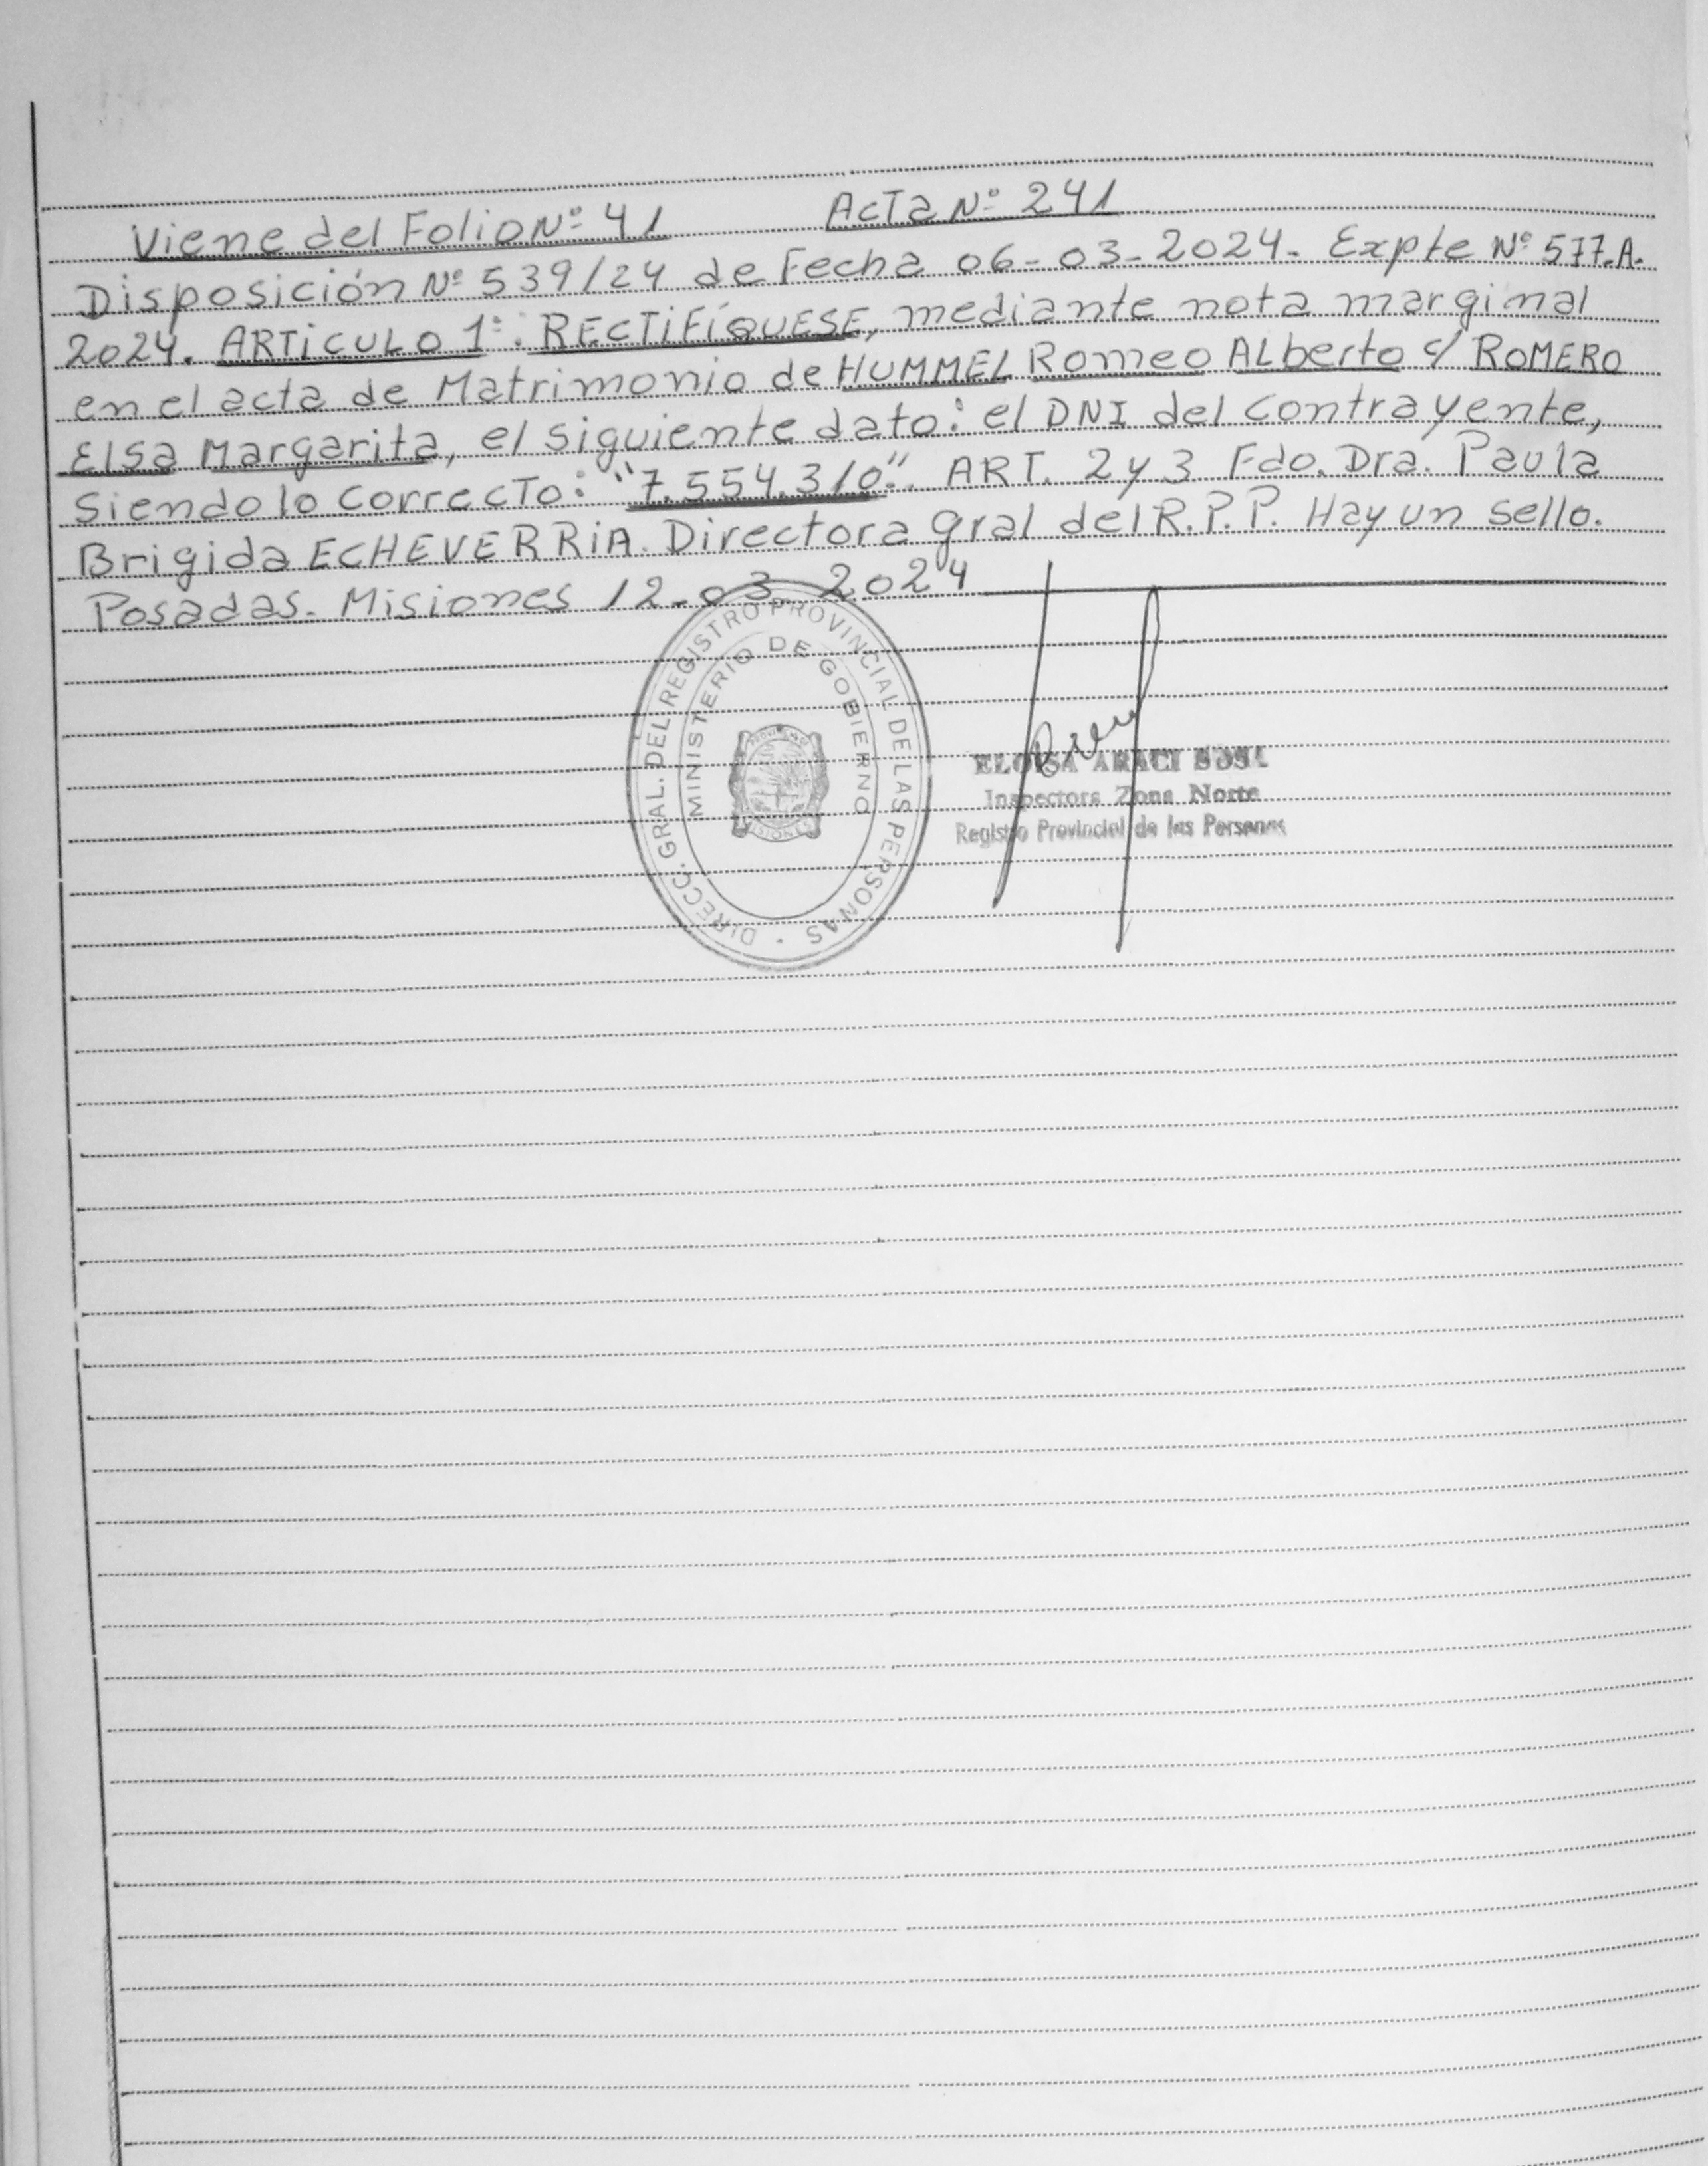 Viene del Folio Nº 41 Acta Nº 241
Disposición Nº 539/24 de Fecha 06-03-2024. Expte Nº 577.A.
2024. ARTICULO 1º: RECTIFÍQUESE, mediante nota marginal
en el acta de Matrimonio de HUMMEL Romeo ALberto c/ ROMERO
Elsa Margarita, el siguiente dato: el DNI del contrayente,
siendo lo correcto: "7.554.310". ART. 2 y 3 Fdo. Dra. Paula
Brigida ECHEVERRIA. Directora gral del R.P.P. Hay un sello.
Posadas. Misiones 12-03-2024
DIRECC. GRAL. DEL REGISTRO PROVINCIAL DE LAS PERSONAS
MINISTERIO DE GOBIERNO
MISIONES
ELOISA ARACI SOSA
Inspectora Zona Norte
Registro Provincial de las Personas